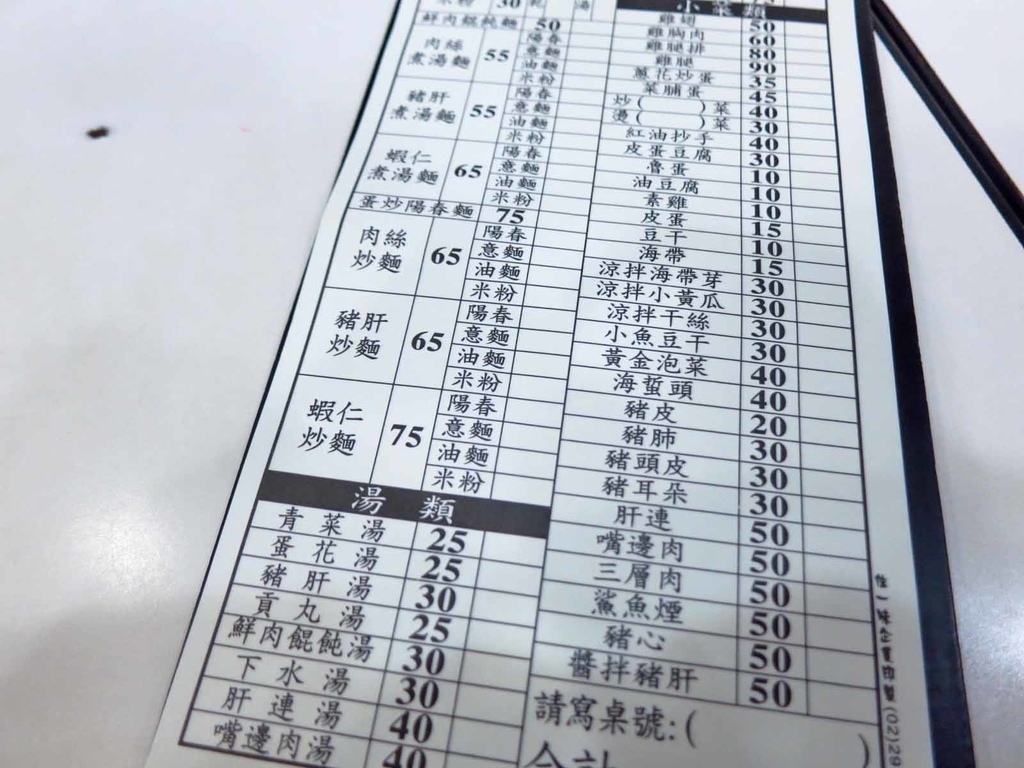 30
湯
鮮肉餛飩麵 50
肉絲
煮湯麵
55
陽春
意麵
油麵
米粉
豬肝
煮湯麵
55
陽春
意麵
油麵
米粉
蝦仁
煮湯麵
65
陽春
意麵
油麵
米粉
蛋炒陽春麵 75
肉絲
炒麵
65
陽春
意麵
油麵
米粉
豬肝
炒麵
65
陽春
意麵
油麵
米粉
蝦仁
炒麵
75
陽春
意麵
油麵
米粉
湯類
青菜湯 25
蛋花湯 25
豬肝湯 30
貢丸湯 25
鮮肉餛飩湯 30
下水湯 30
肝連湯 40
嘴邊肉湯 40
小菜類
雞翅 50
雞胸肉 60
雞腿排 80
雞腿 90
蔥花炒蛋 35
菜脯蛋 45
炒( )菜 40
燙( )菜 30
紅油抄手 40
皮蛋豆腐 30
魯蛋 10
油豆腐 10
素雞 10
皮蛋 15
豆干 10
海帶 15
涼拌海帶芽 30
涼拌小黃瓜 30
涼拌干絲 30
小魚豆干 30
黃金泡菜 40
海蜇頭 40
豬皮 20
豬肺 30
豬頭皮 30
豬耳朵 30
肝連 50
嘴邊肉 50
三層肉 50
鯊魚煙 50
豬心 50
醬拌豬肝 50
請寫桌號:( )
合計
(02)29